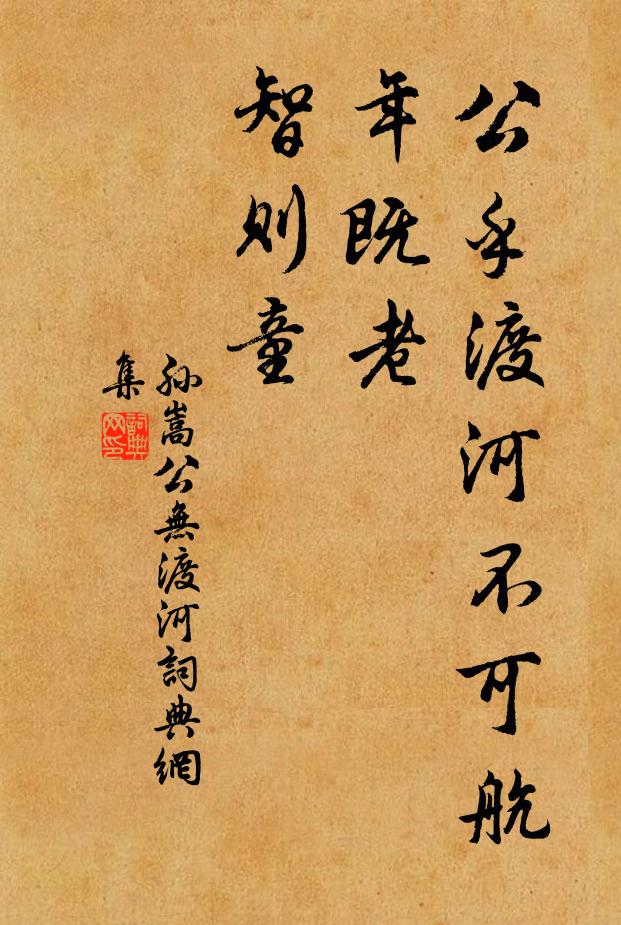 公乎渡河不可航
年既老
智則童
孫嵩公無渡河詞典網
集
詞典
网印